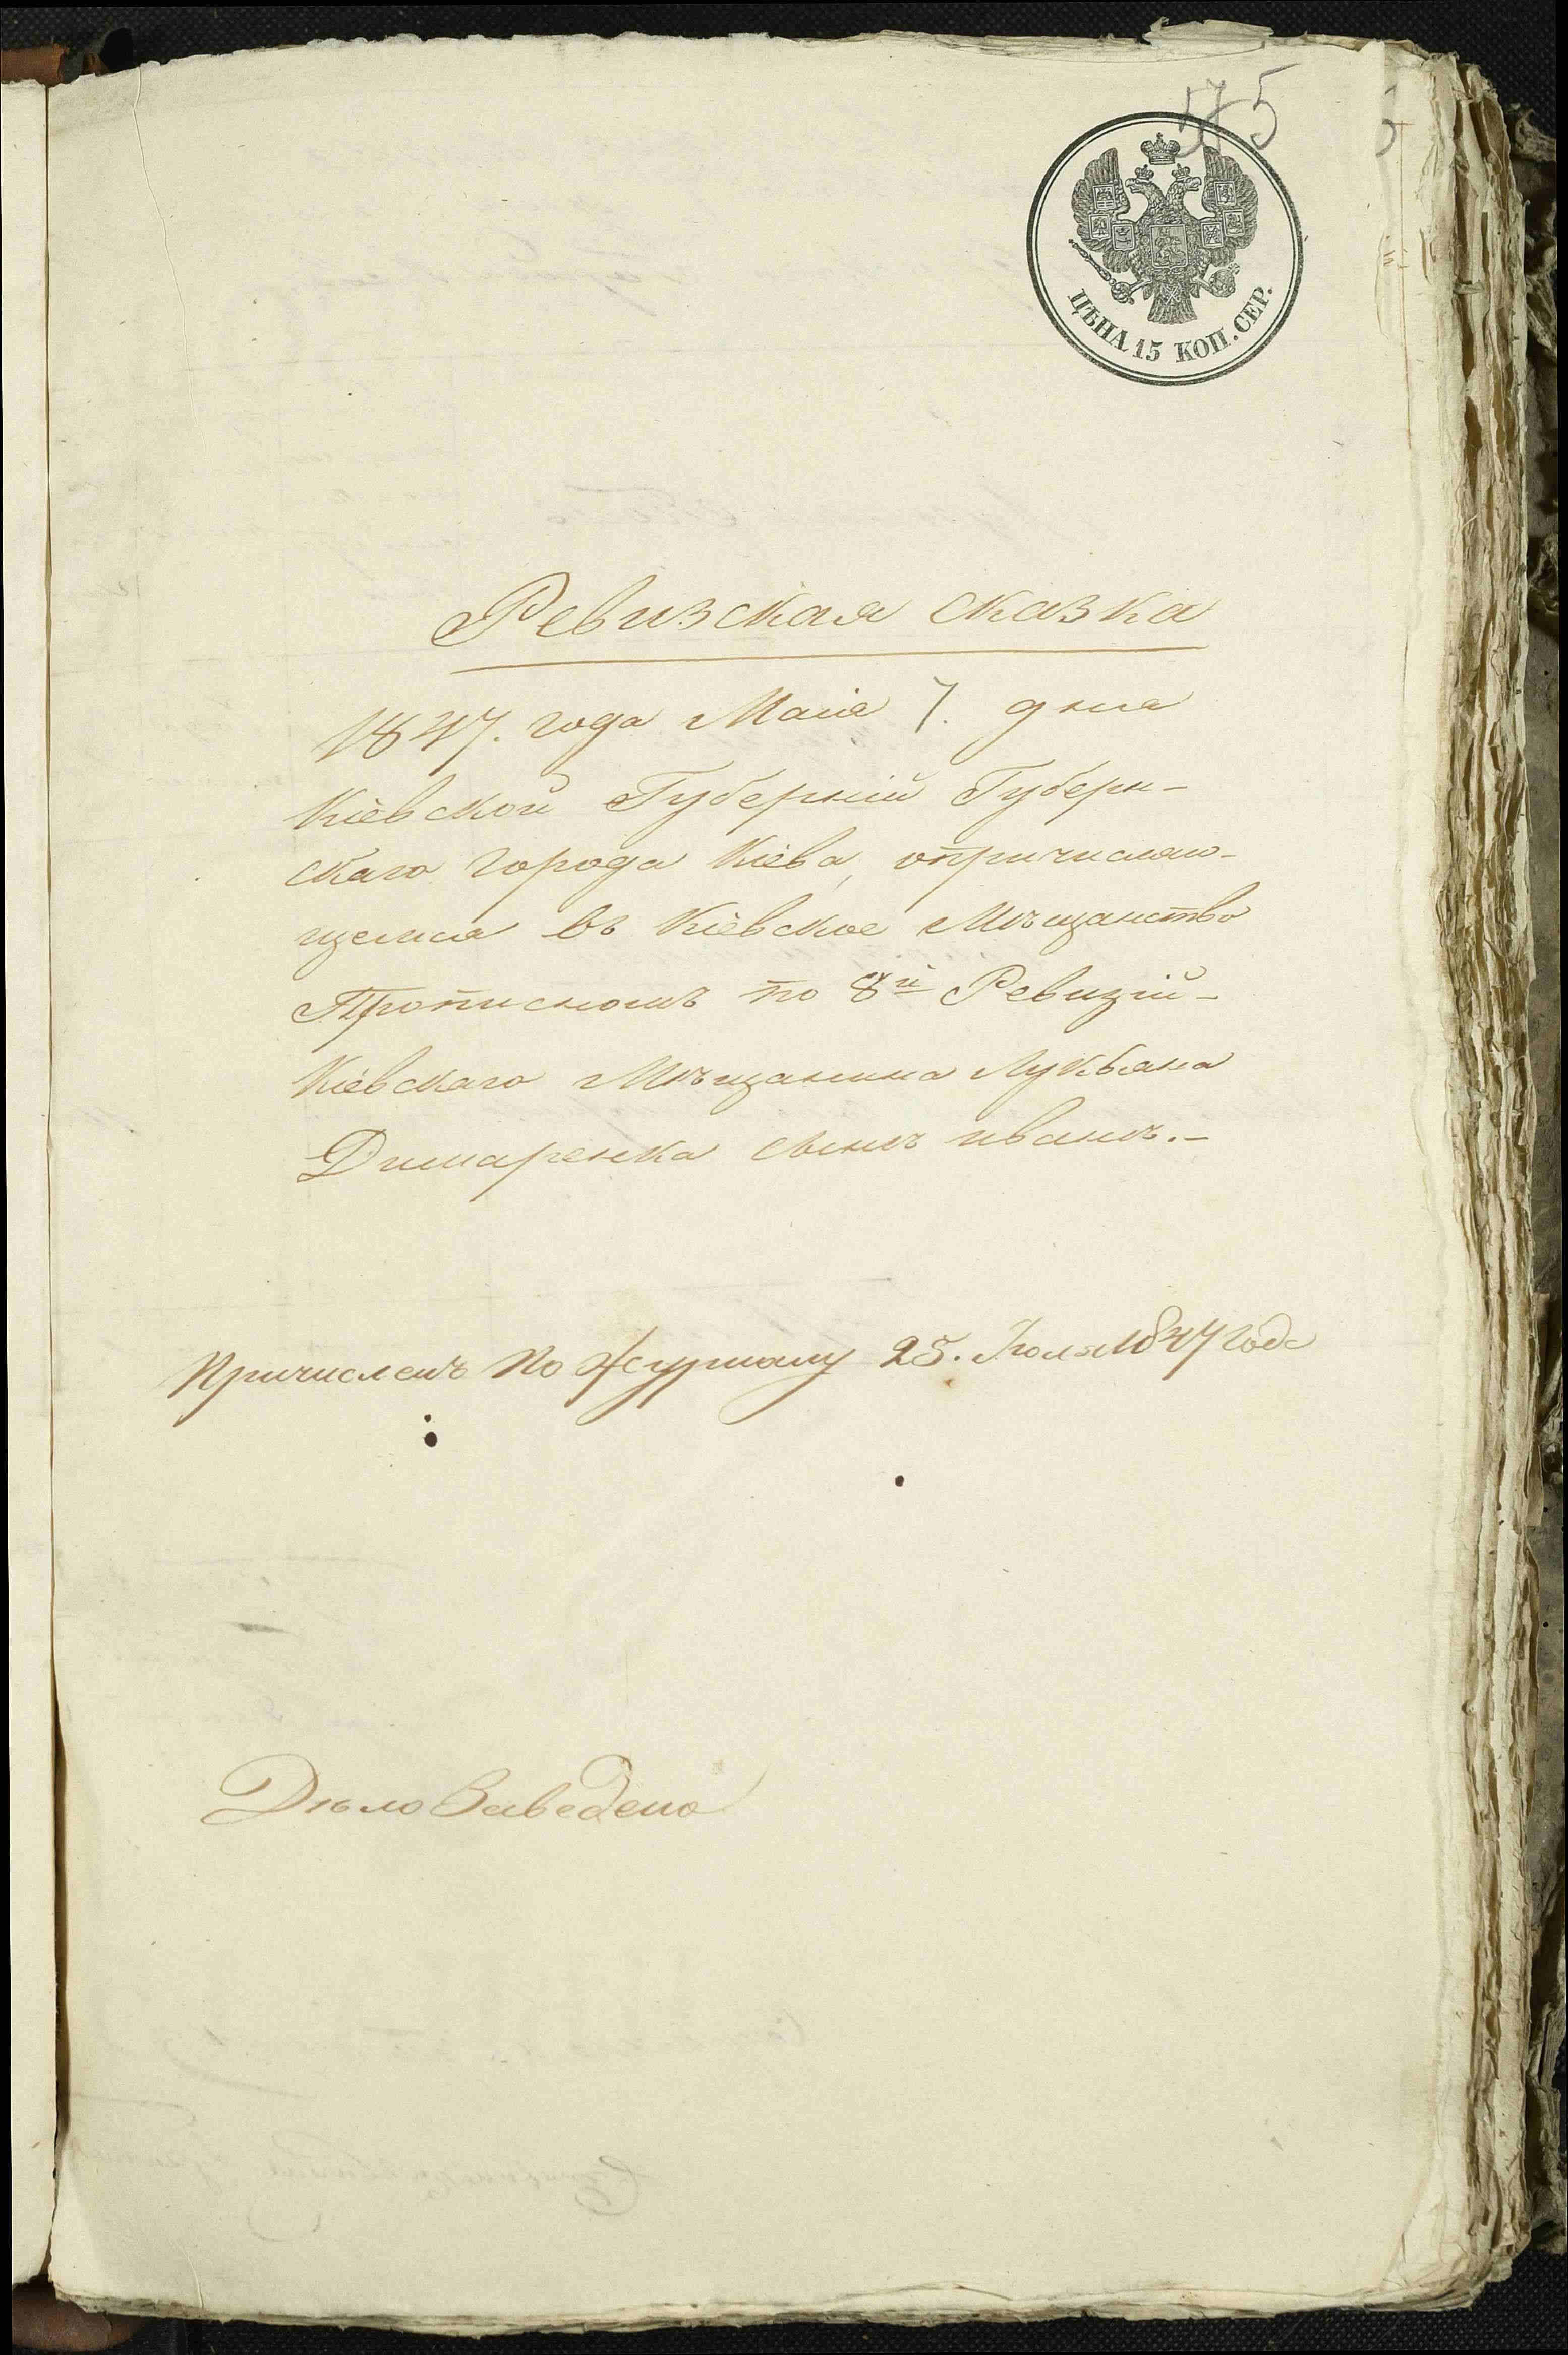 575
ЦѢНА 15 КОП. СЕР.
Ревизская сказка
1847. года Маія 7. дня
Кіевской Губерніи Губерн-
скаго города Кіева, опричисляю-
щемся въ Кіевское Мѣщанство
Прописномъ по 8й Ревизіи-
Кіевскаго Мѣщанина Лукьяна
Димаренка сынъ иванъ.-
Причисленъ по Журналу 25. Іюля 1847 года
Дѣло Заведено